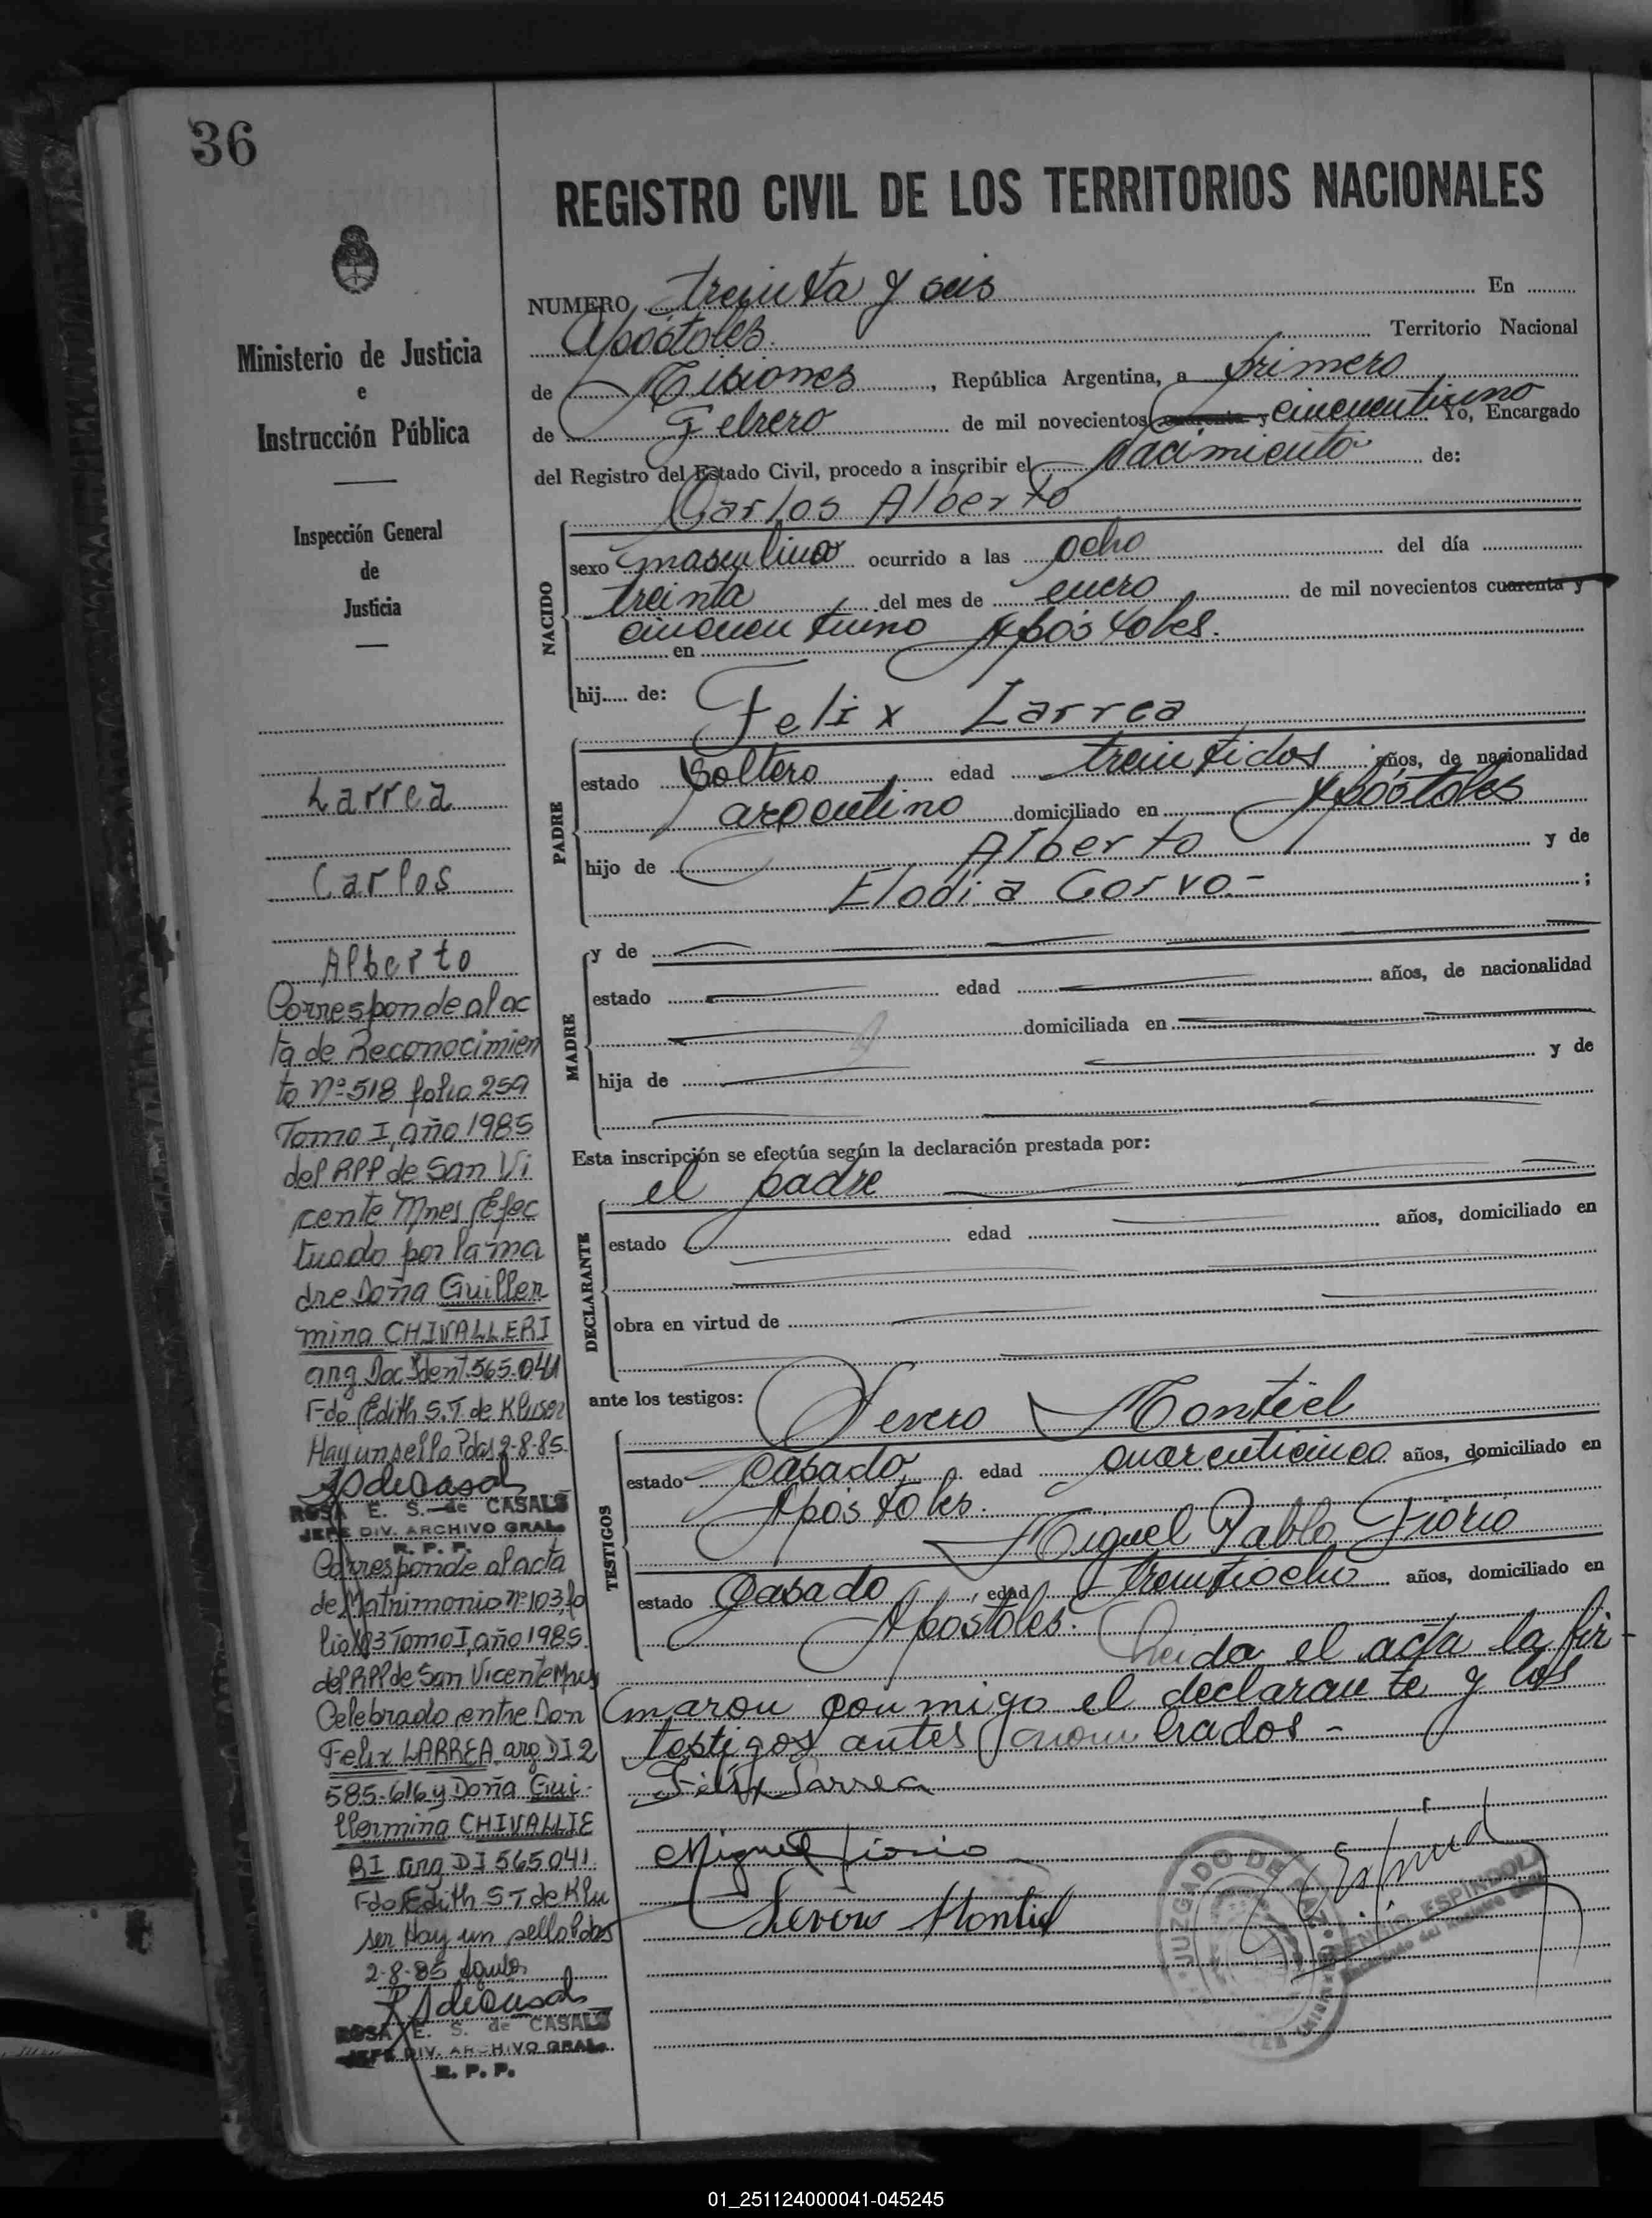 36
Ministerio de Justicia
e
Instrucción Pública
Inspección General
de
Justicia
Larrea
Carlos
Alberto
Corresponde al ac
ta de Reconocimien
to Nº 518 folio 259
Tomo I, año 1985
del RPP de San Vi
cente Mnes Efec
tuado por la ma
dre Doña Guiller
mina CHIVALLERI
arg Doc Ident. 565.041
Fdo Edith S.T. de Kluser
Hay un sello Pdas 2-8-85.
ROSA E. S. de CASALS
JEFE DIV. ARCHIVO GRAL.
R. P. P.
Corresponde al acta
de Matrimonio nº 103, fo
lio 103 Tomo I, año 1985.
del RPP de San Vicente Mnes
Celebrado entre Don
Felix LARREA arg DI 2
585.616 y Doña Gui-
llermina CHIVALLE
RI arg DI 565041.
Fdo Edith S T de Klu
ser Hay un sello Pdas
2-8-85
ROSA E. S. de CASALS
JEFE DIV. ARCHIVO GRAL.
R. P. P.
REGISTRO CIVIL DE LOS TERRITORIOS NACIONALES
NUMERO treinta y seis En
Apóstoles. Territorio Nacional
de Misiones, República Argentina, a primero
de Febrero de mil novecientos cuarenta y cincuentiuno Yo, Encargado
del Registro del Estado Civil, procedo a inscribir el nacimiento de:
Carlos Alberto
NACIDO
sexo masculino ocurrido a las ocho del día
treinta del mes de enero de mil novecientos cuarenta y
cincuentiuno en Apóstoles.
hij..... de:
Felix Larrea
PADRE
estado Soltero edad treintidos años, de nacionalidad
argentino domiciliado en Apóstoles
hijo de Alberto y de
Elodia Corvo.- ;
MADRE
y de
estado edad años, de nacionalidad
domiciliada en
hija de y de
Esta inscripción se efectúa según la declaración prestada por:
el padre
DECLARANTE
estado edad años, domiciliado en
obra en virtud de
ante los testigos: Severo Montiel
TESTIGOS
estado Casado, edad cuarenticinco años, domiciliado en
Apóstoles.
Miguel Pablo Fiorio
estado Casado, edad treintiocho años, domiciliado en
Apóstoles. Leida el acta la fir-
maron conmigo el declarante y los
testigos antes nombrados -
Félix Larrea
Miguel Fiorio
Severo Montiel
JUZGADO DE PAZ
ESPINDOLA
01_251124000041-045245